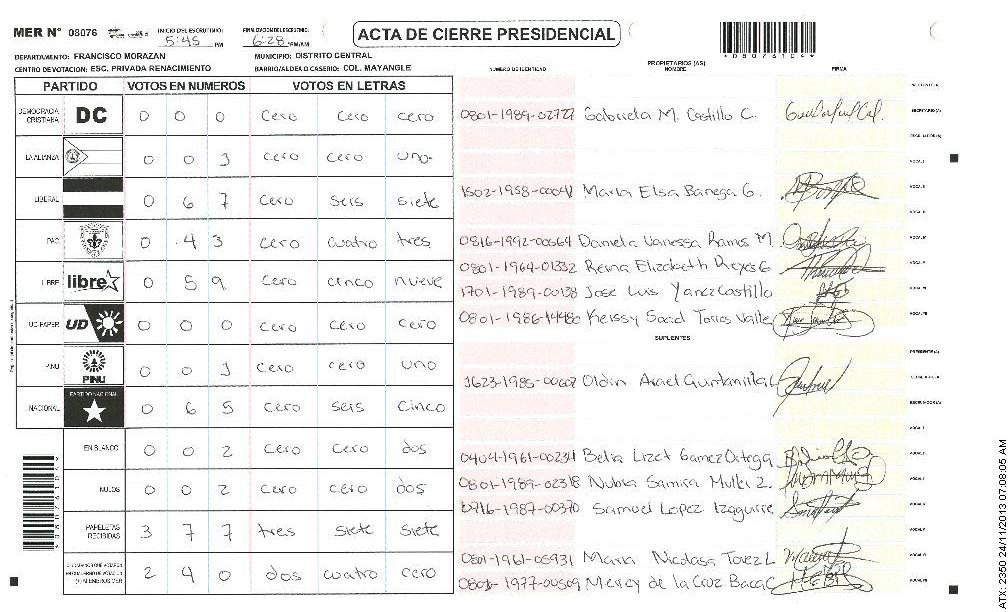 MER Nº 08076 INICIO DEL ESCRUTINIO: 5:45 PM FINALIZACION DEL ESCRUTINIO: 6:28 PM/AM ACTA DE CIERRE PRESIDENCIAL *08076104*
DEPARTAMENTO: FRANCISCO MORAZAN MUNICIPIO: DISTRITO CENTRAL
CENTRO DE VOTACION: ESC. PRIVADA RENACIMIENTO BARRIO/ALDEA O CASERIO: COL. MAYANGLE
NUMERO DE IDENTIDAD PROPIETARIOS (AS) NOMBRE FIRMA
PARTIDO VOTOS EN NUMEROS VOTOS EN LETRAS
DEMOCRACIA CRISTIANA DC 0 0 0 cero cero cero
0801-1989-02727 Gabriela M. Castillo C. SECRETARIO(A)
LA ALIANZA 0 0 1 cero cero uno
LIBERAL 0 6 7 cero seis siete
1502-1958-00041 Maria Elsa Banega G.
PAC 0 4 3 cero cuatro tres
0816-1992-00564 Daniela Vanessa Ramos M.
0801-1964-01332 Reina Elizabeth Reyes G
LIBRE libre 0 5 9 cero cinco nueve
1701-1989-00138 Jose Luis Yanez Castillo
UD-FAPER UD 0 0 0 cero cero cero
0801-1986-14480 Keissy Saad Torres Valle
SUPLENTES
PINU PINU 0 0 1 cero cero uno
1623-1985-00602 Oldin
NACIONAL PARTIDO NACIONAL 0 6 5 cero seis cinco
EN BLANCO 0 0 2 cero cero dos
0404-1961-00234 Belia Lizet Gamez Ortega
NULOS 0 0 2 cero cero dos
0801-1989-02318 Nubia Samira Muller Z.
0716-1987-00370 Samuel Lopez Izaguirre
PAPELETAS RECIBIDAS 3 7 7 tres siete siete
0801-1961-05931 Maria Nicolasa
CIUDADANOS QUE VOTARON EN CUADERNO DE VOTACION (+) MIEMBROS MER 2 4 0 dos cuatro cero
1977-00509 Mercy de la Cruz Baca C
ATX3: 2350 24/11/2013 07:08:05 AM